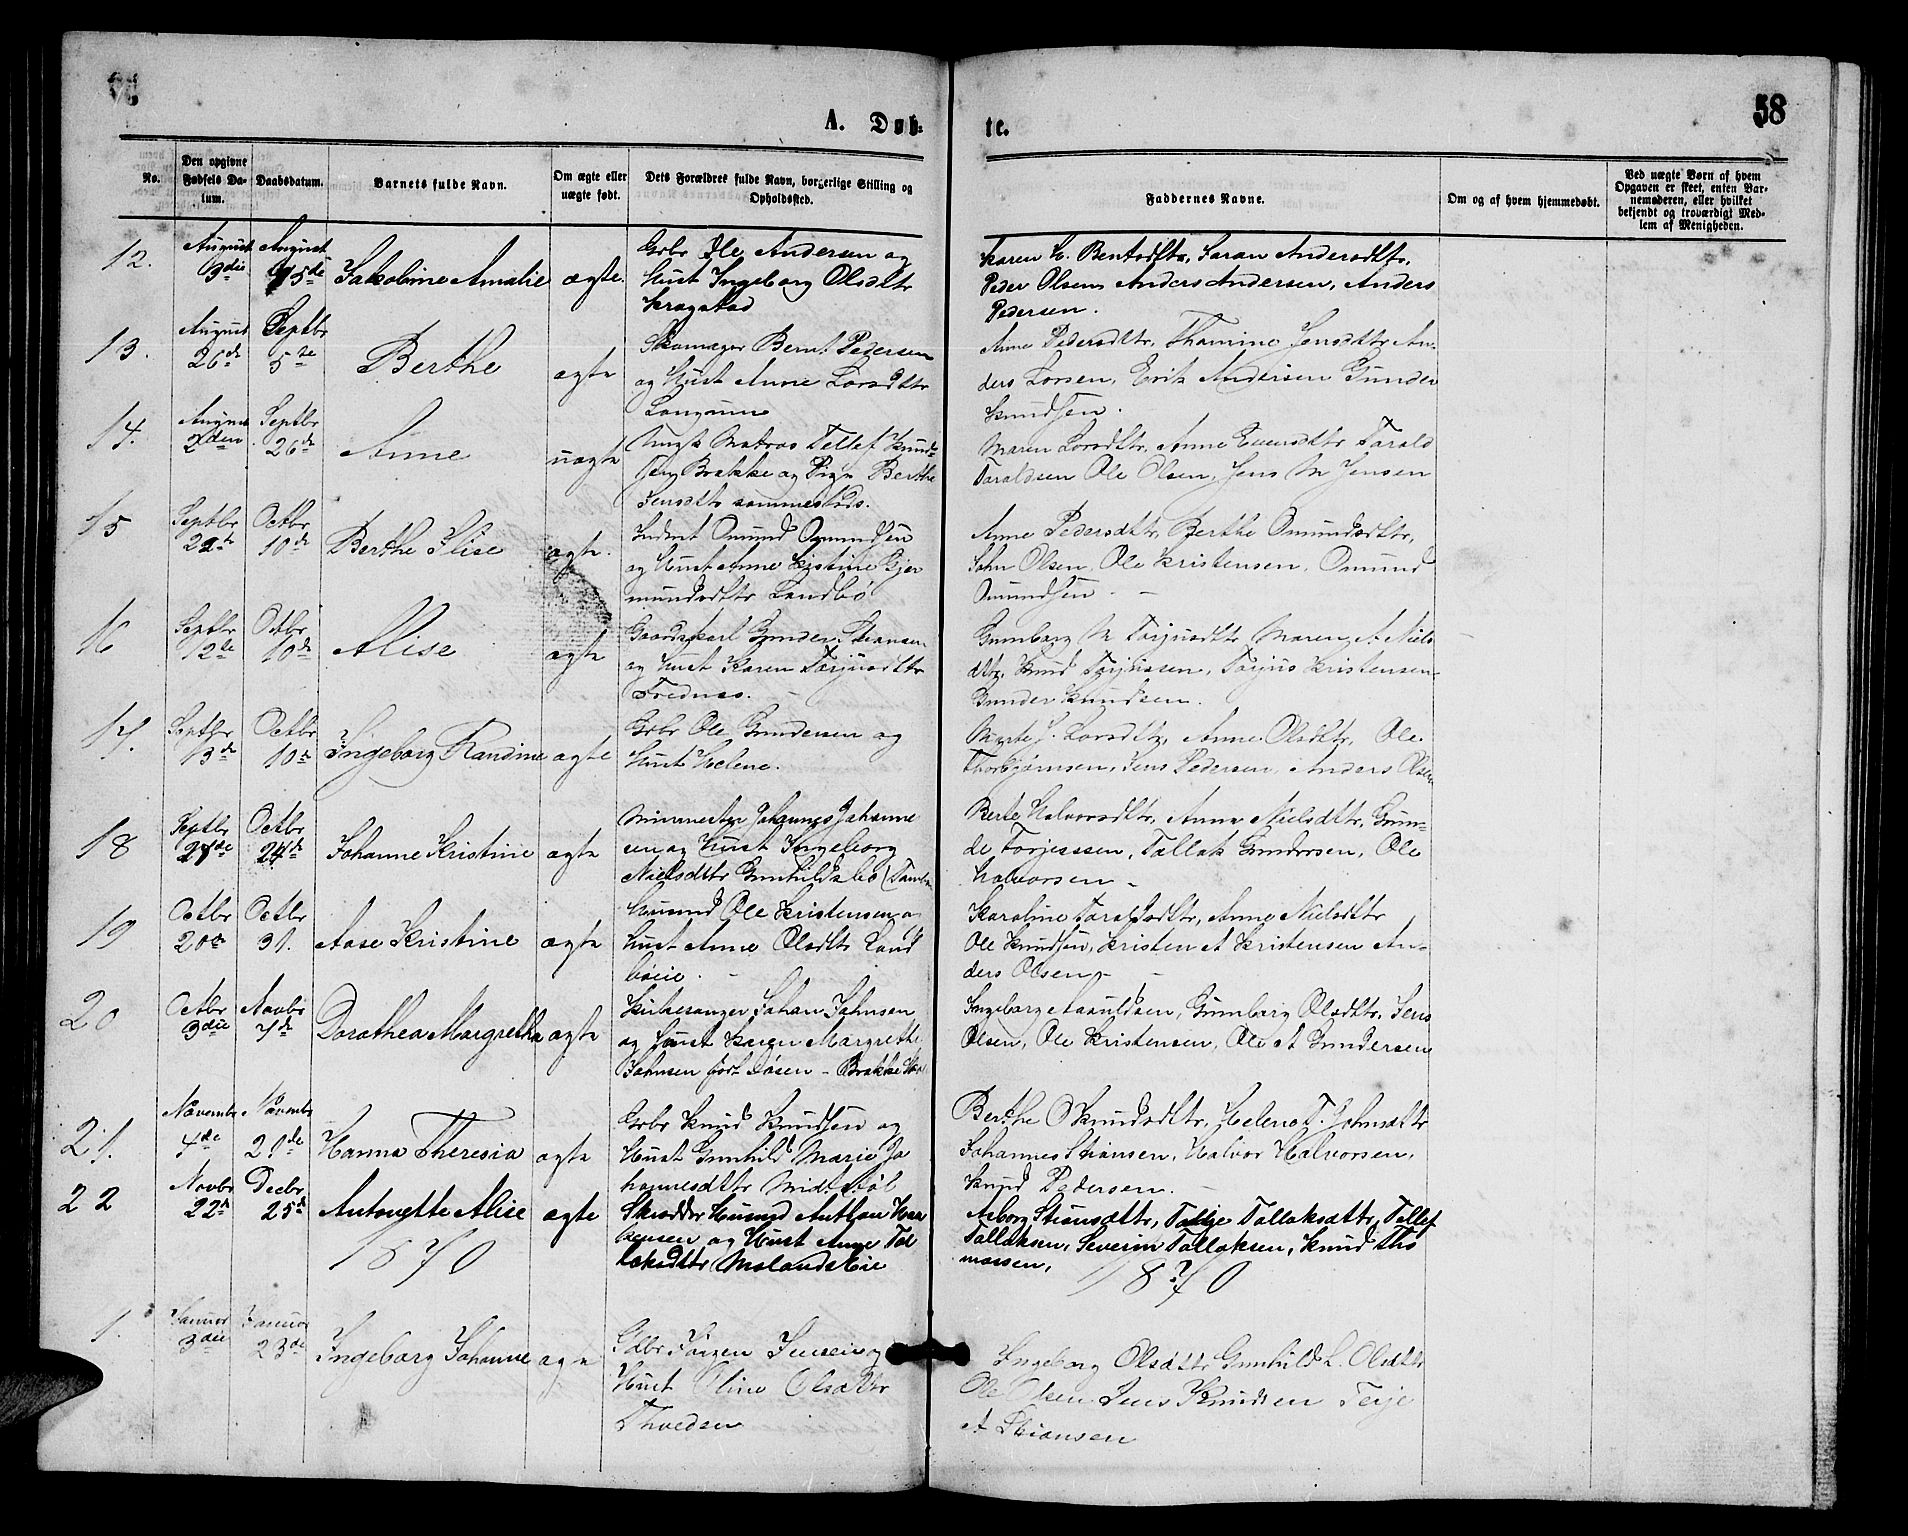 A. Døb-
te.
58
No.
Den opgivne Fødsels Da-
tum.
Daabsdatum.
Barnets fulde Navn.
Om ægte eller
uægte født.
Dets Forældres fulde Navn, borgerlige Stilling og
Opholdssted.
Faddernes Navne.
Om og af hvem hjemmedøbt.
Ved uægte Børn af hvem
Opgaven er skeet, enten Bar-
nemoderen, eller hvilket
bekjendt og troværdigt Med-
lem af Menigheden.
12.
August
3die
August
15de
Jakobine Amalie
ægte.
Grbr Ole Andersen og
Hust Ingeborg Olsdtr
Kragstad
Karen E. Bentsdtr, Saran Andersdtr,
Peder Olsen Anders Andersen, Anders
Pedersen.
13.
August
26de
Septbr
5te
Berthe
ægte
Skomager Bernt Pedersen
og Hust Anne Larsdtr
Langum
Anne Pedersdtr, Thomine Jensdtr An-
ders Larsen, Erik Andersen Gunder
Knudsen.
14.
August
2den
Septbr
26de
Anne
uægte
Ungk Matros Tellef Knud-
sen Brække og Pige Berthe
Jensdtr sammesteds.
Maren Larsdtr, Anne Evensdtr Tarald
Taraldsen Ole Olsen, Jens M Jensen
15
Septbr
Octbr
10de
Berthe Elise
ægte.
Inderst Omund Omundsen
og Hust Anne Kistine Gjer
mundsdtr Landbø
Anne Pedersdtr, Berthe Omundsdtr,
John Olsen, Ole Kristensen, Omund
Omundsen. -
16
Septbr
12te
Octbr
10de
Alise
ægte
Gaardskarl Gunder Stiansen
og Hust Karen Torjusdtr
Frednes. -
Gunborg M Torjusdtr Maren A Niels
dtr, Knud Torjussen, Torjus Kristensen
Gunder Knudsen.
17.
Septbr
13de
Octbr
10de
Ingeborg Randine
ægte
Grbr Ole Gundersen og
Hust Helene.
Marte J. Larsdtr, Anne Olsdtr, Ole
Thorbjørnsen, Jens Pedersen, Anders Olsen
18
Septbr
27de
Octbr
24de
Johanne Kristine
ægte
Johannes Johanne
sen og Hust Ingeborg
Nielsdtr Gunhildsbo
Berte Halvorsdtr, Anne Nielsdtr, Gun-
de Torjussen, Tallak Gundersen, Ole
Halvorsen -
19
Octbr
20de
Octbr
31.
Aase Kristine
ægte
Husmd Ole Kristensen o
Hust Anne Olsdtr Land
bøeie. -
Karoline Taraldsdtr, Anne Nielsdtr
Ole Knudsen, Kristen A Kristensen An-
ders Olsen - -
20
Octbr
3die
Novbr
7de
Dorothea Margretha
ægte
Kirkesanger Johan Johnsen
og Hust Karen Margrethe
Johnsen født Døsen - Brække
Ingeborg Aanuldsen, Gunborg Olsdtr, Jens
Olsen, Ole Kristensen, Ole A Gundersen
21.
Novembr
4de
Novembr
21de
Hanna Theresia
ægte
Grbr Knud Knudsen og
Hust Gunhild Marie Jo
hannesdtr Midtbøl
Berthe O Knudsdtr, Helene T. Johnsdtr
Johannes Stiansen, Halvor Halvorsen,
Knud Pedersen. -
22
Novbr
22de
Decbr
25de
Antonette Alise
ægte
Skrædder Husmd Anthon Haa
kensen og Hust Anne Tal
laksdtr Molands Eie
Asborg Stiansdtr, Tallje Tallaksdtr, Tellef
Tallaksen, Severin Tallaksen, Knud Tho
massen,
1870
1870
1.
Januar
3die
Januar
23de
Ingeborg Johanne
ægte
Gdbr Jørgen Jensen og
Hust Oline Olsdttr
Thveden
Ingeborg Olsdttr Gunhild L. Olsdttr
Ole Olsen Jens Knudsen Terje
A Stiansen